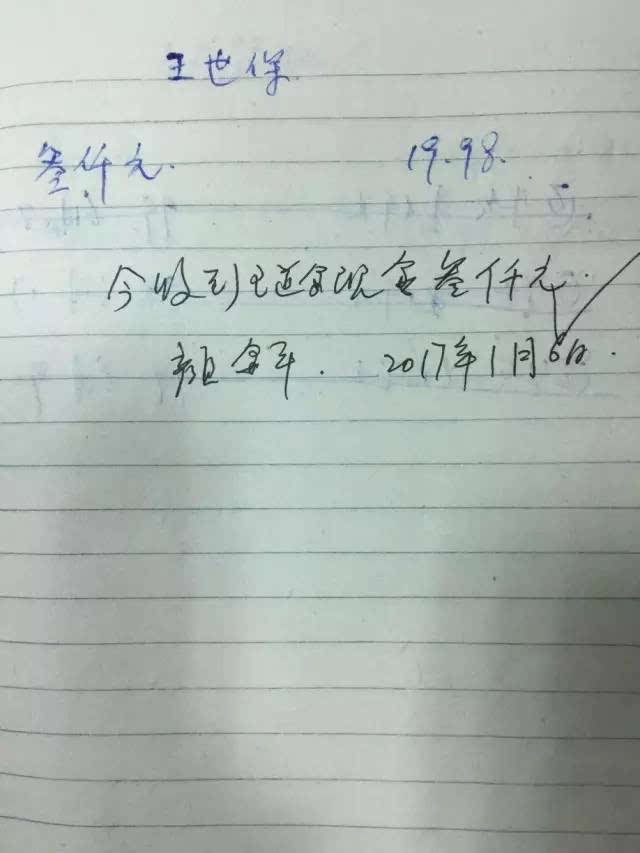 王世保
叁仟元. 19.98.
今收到王道全现金叁仟元.
颜金平. 2017年1月6日.